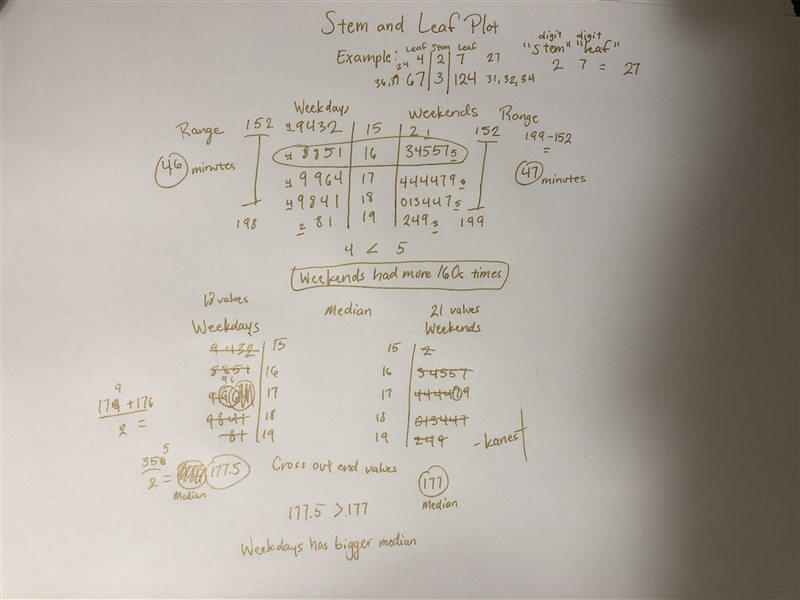 Stem and Leaf Plot
Example:
Leaf Stem Leaf
24 4 | 2 | 7 27
36, 37 67 | 3 | 124 31, 32, 34
digit digit
"Stem" "leaf"
2 7 = 27
Weekdays Weekends
Range 152
46 minutes
198
4 9432 | 15 | 2 1
4 8851 | 16 | 34557 5
4 9964 | 17 | 444479 6
4 9841 | 18 | 013447 5
2 81 | 19 | 249 3
152 Range
199-152
=
47 minutes
199
4 < 5
Weekends had more 160s times
18 values Median 21 values
Weekdays Weekends
9432 | 15
8851 | 16
96
17
9841 | 18
81 | 19
15 | 2
16 | 34557
17 | 444479
18 | 013447
19 | 249
- kanest
9
179 + 176
2 =
5
355
2 = 177.5
Median
Cross out end values
177
Median
177.5 > 177
Weekdays has bigger median